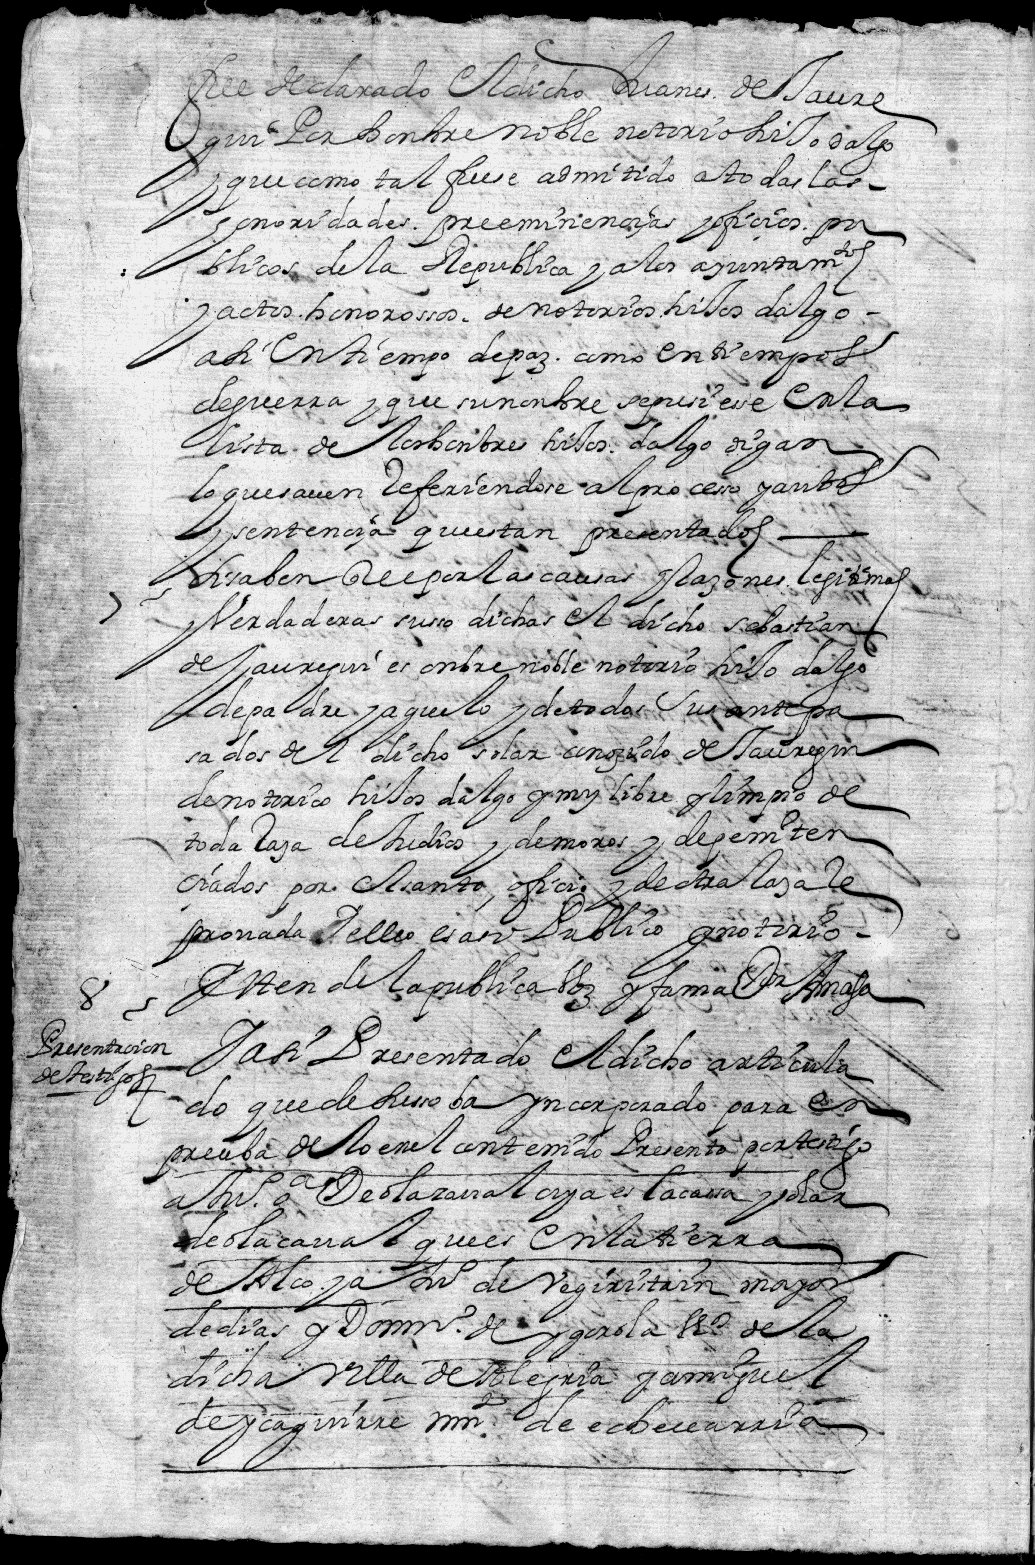 fue declarado El dicho Juanes de Jaure
gui Por honbre noble notorio hijo dalgo
y que como tal fuese admitido a todas las
honoridades preeminencias y oficios pu
blicos de la Republica y a los ayuntamtos
y actos honorossos de notorios hijos dalgo
asi En tiempo de paz como en tiempos
de guerra y que su nonbre se pusiesse En la
lista de los honbres hijos dalgo digan
lo que sauen Refiriendose al processo y autos
y sentencia que estan presentados
7 si saben que por las causas y Razones legitimas
y Verdaderas susso dichas El dicho sebastian
de Jauregui es onbre noble notorio hijo dalgo
de padre y aguelo y de todos sus antepa
sados del dicho solar conozido de Jauregui
de notorios hijos dalgo y muy libre y limpio de
toda Raza de Judios y de moros y de peniten
ciados por El santo oficio y de otra Raza Re
prouada y ello es asi Publico y notorio
8 Yten de la publica boz y fama
Presentacion
de testigos
Y asi Presentado El dicho articula
do que de Susso ba yncorporado para en
prueba de lo en el contenido Presento por testigo
a Ju. de olazaual cuya es la cassa y solar
de olacaual que es En la tierra
de Alço y a Ju de Vegiristain mayor
de dias y Domin. de ygerola Vo de la
dicha Villa de Alegria y a miguel
de ycaguirre mn. de echeuarria